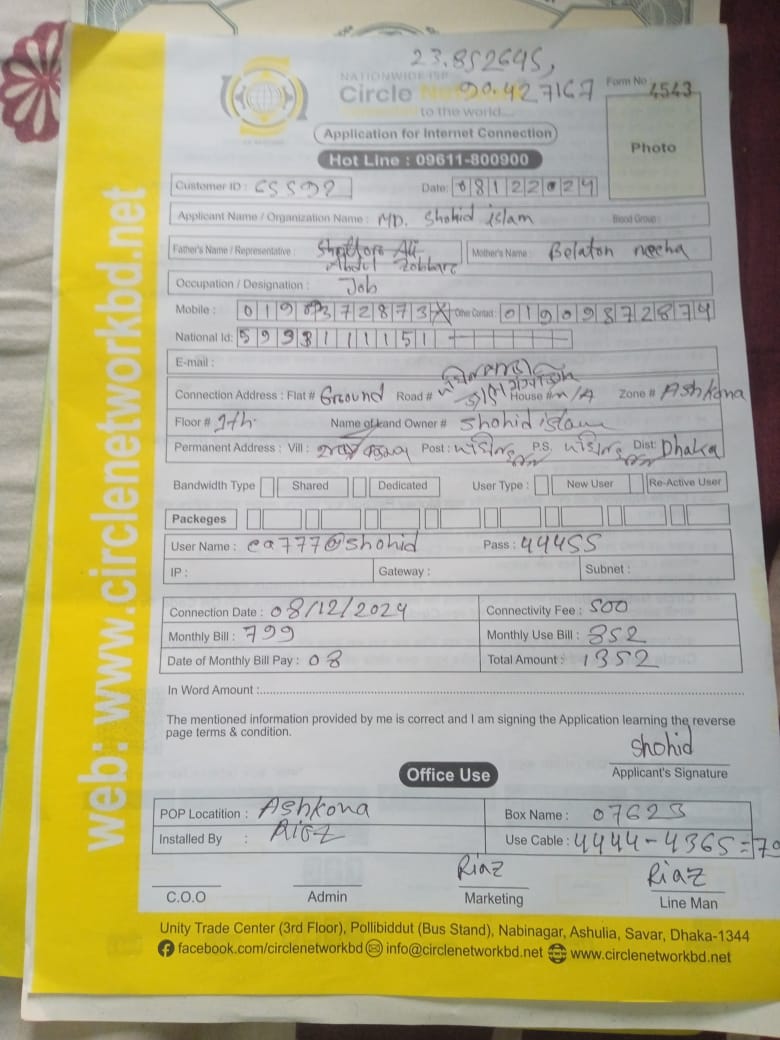 23.852645,
90.427167
NATIONWIDE ISP
Circle Network
to the world...
Form No 4543
Photo
Application for Internet Connection
Hot Line : 09611-800900
Customer ID :
Date: 08122024
Applicant Name / Organization Name : MD. Shohid islam Blood Group :
Father's Name / Representative : Ali
Abdul Zobbare
Mother's Name : Belaton necha
Occupation / Designation : Job
Mobile : Other Contact : 01909372874
National Id: 5993111151
E-mail :
Connection Address : Flat # Ground Road # House # n/A Zone # Ashkona
Floor # Name of Land Owner # Shohid islam
Permanent Address : Vill : Post : P.S. Dist: Dhaka
Bandwidth Type Shared Dedicated User Type : New User Re-Active User
Packeges
User Name : ea777@shohid Pass : 44455
IP : Gateway : Subnet :
Connection Date : 08/12/2024 Connectivity Fee : 500
Monthly Bill : 799 Monthly Use Bill : 852
Date of Monthly Bill Pay : 08 Total Amount : 1352
In Word Amount :
The mentioned information provided by me is correct and I am signing the Application learning the reverse
page terms & condition.
Shohid
Applicant's Signature
Office Use
POP Locatition : Ashkona Box Name : 07623
Installed By : Riaz Use Cable : 4444-4365=79
Riaz Riaz
C.O.O Admin Marketing Line Man
Unity Trade Center (3rd Floor), Pollibiddut (Bus Stand), Nabinagar, Ashulia, Savar, Dhaka-1344
facebook.com/circlenetworkbd info@circlenetworkbd.net www.circlenetworkbd.net
web: www.circlenetworkbd.net